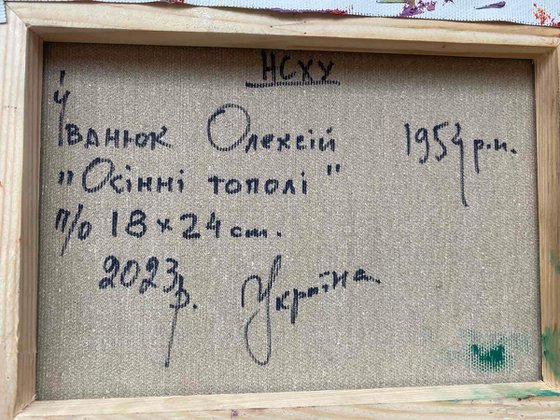 НСХУ
Іванюк Олексій 1954 р.н.
"Осінні тополі"
п/о 18×24 cm.
2023р. Україна